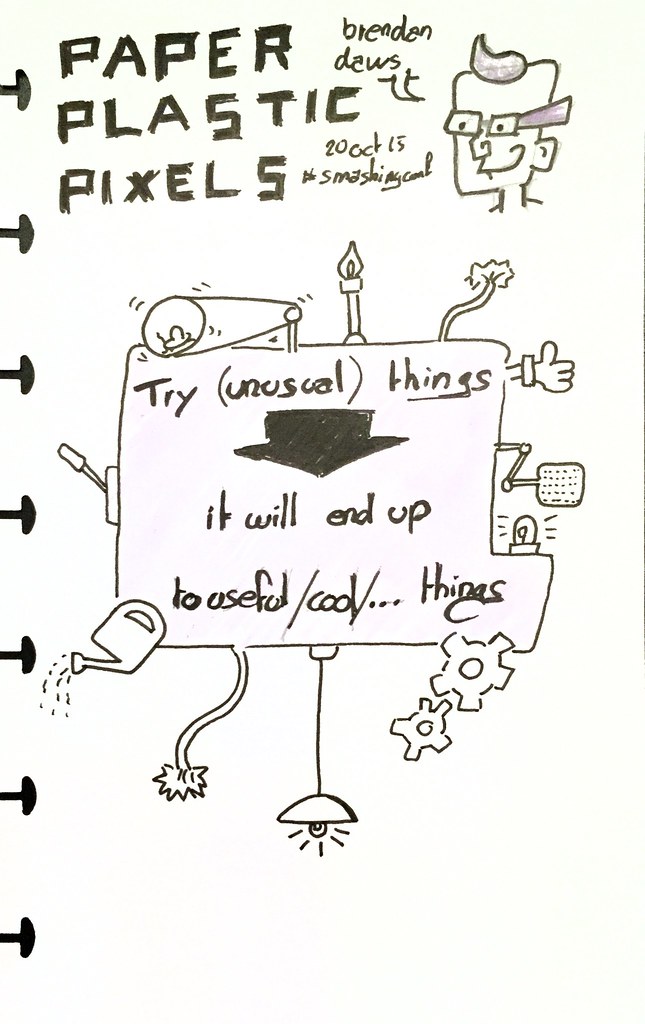 PAPER
PLASTIC
PIXELS
brendan
daws
20 oct 15
#smashingconf
Try (unusual) things
it will end up
to useful/cool/... things